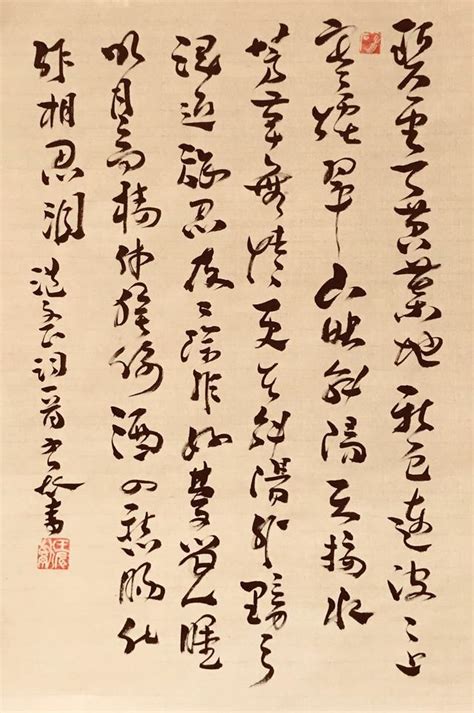 碧雲天黄葉地秋色連波〻上
寒煙翠山映斜陽天接水
芳草無情更在斜陽外黯鄉
魂追旅思夜〻除非好夢留人睡
明月高樓休獨倚酒入愁腸化
作相思淚 范文正詞一首 書